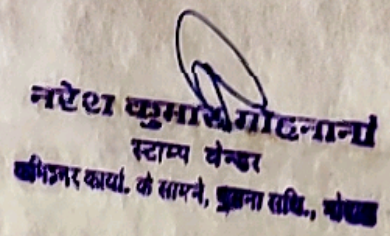 नरेश कुमार मोहनानी
स्टाम्प वेन्डर
कमिश्नर कार्या. के सामने, पुराना सचि., भोपाल